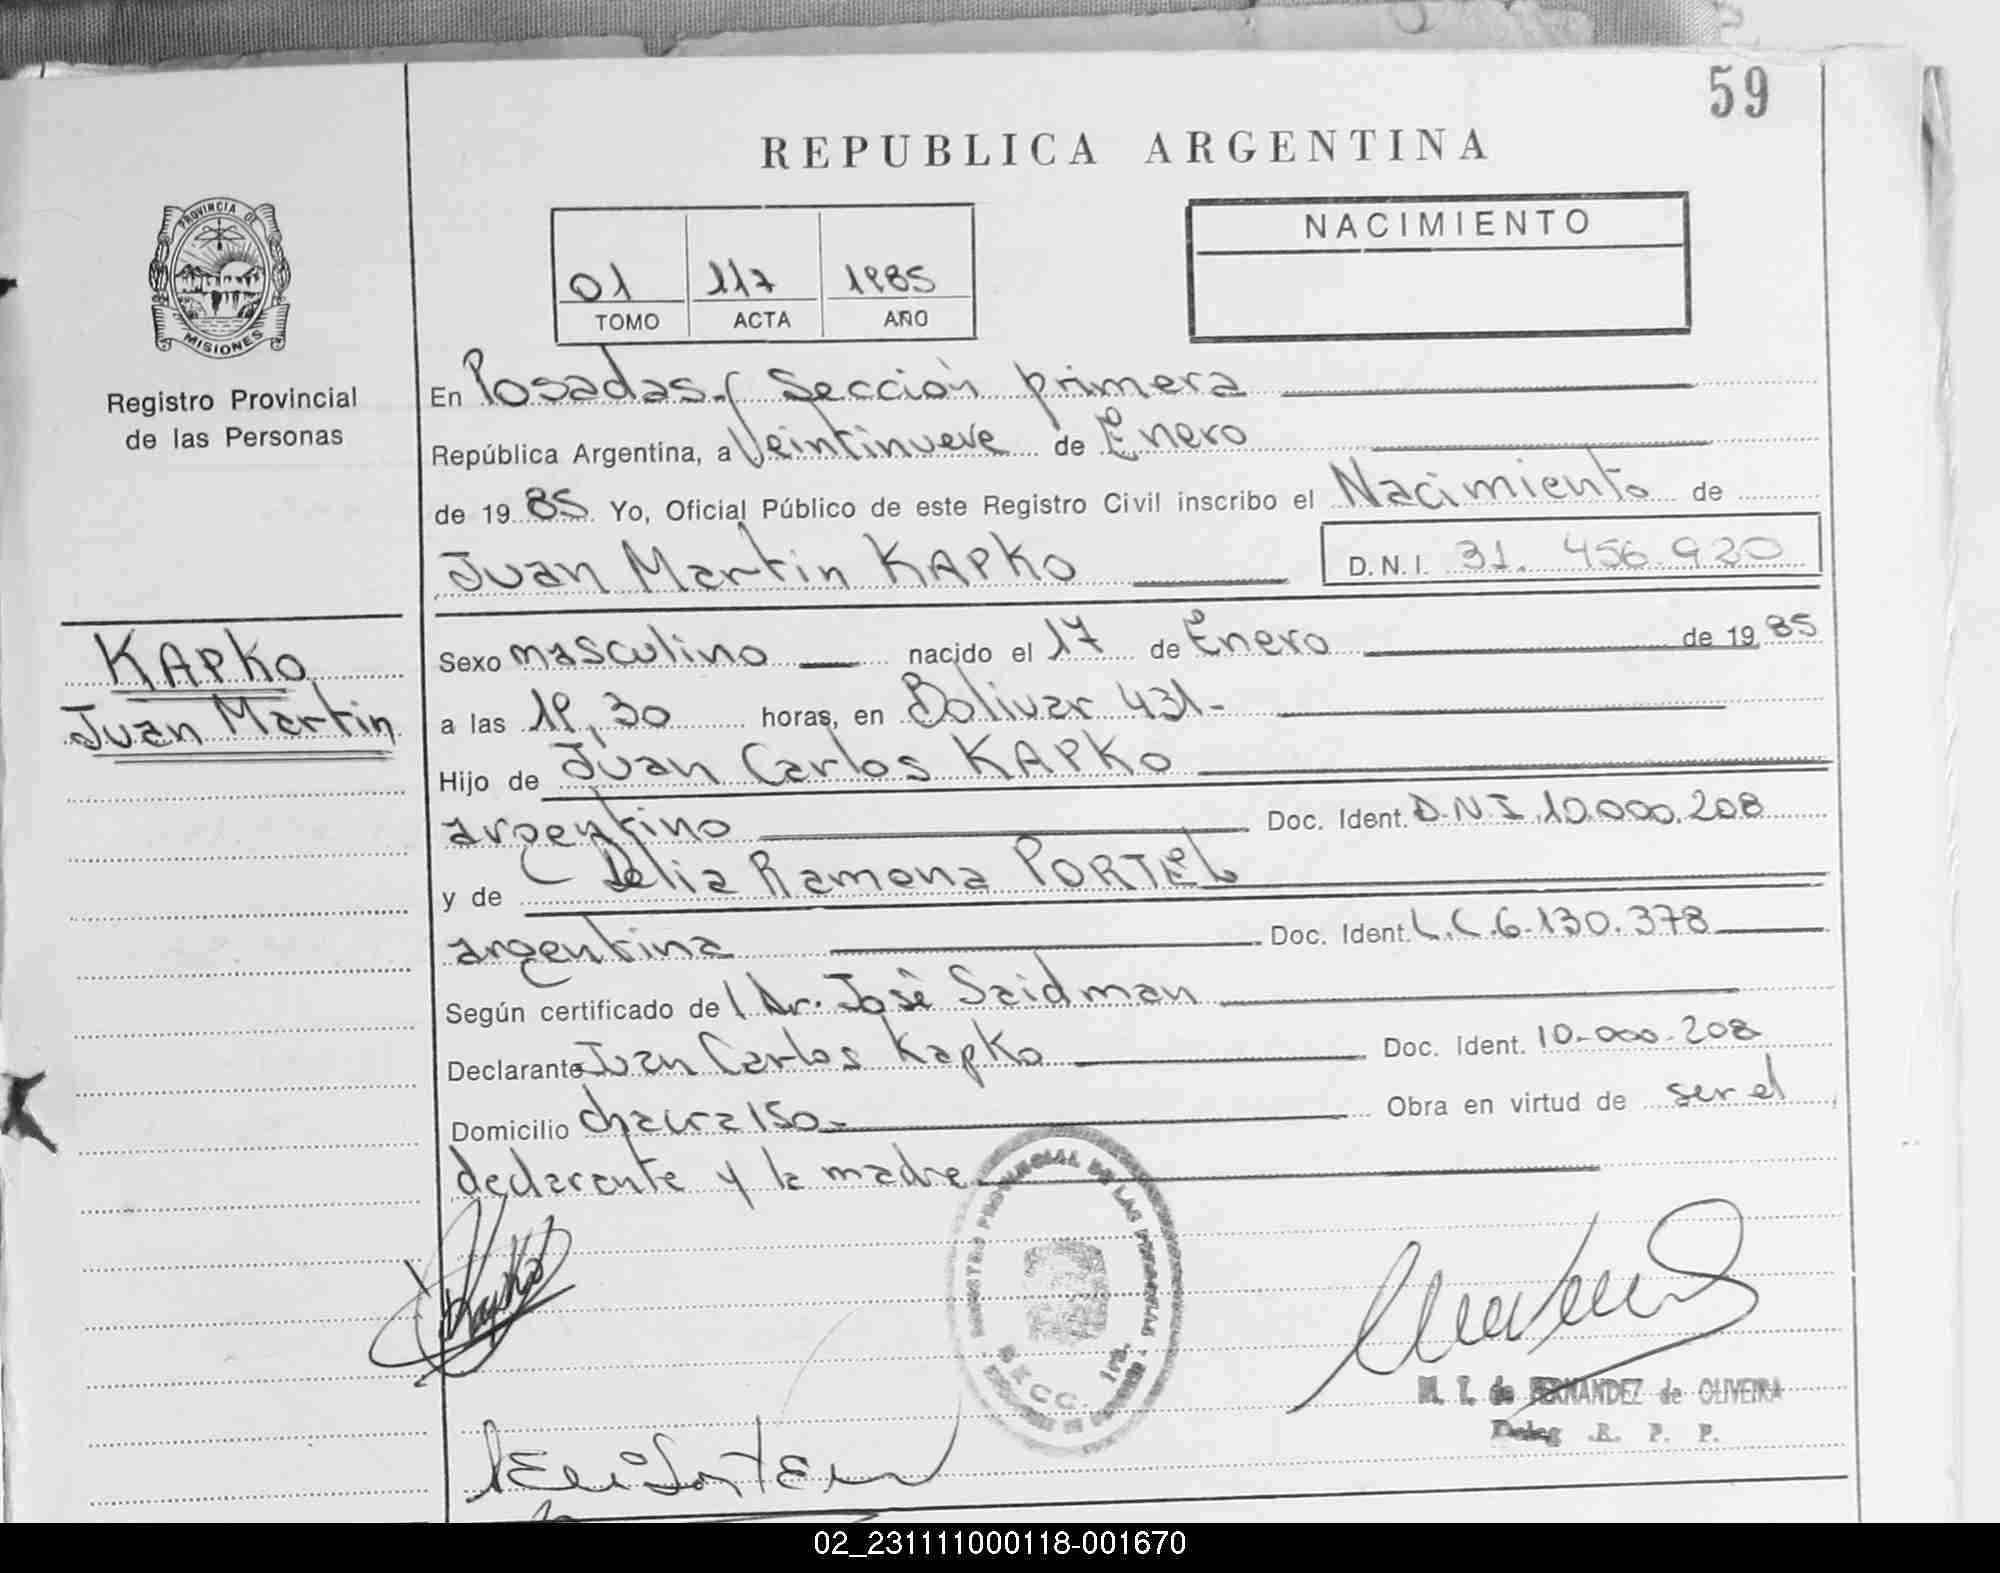 59
REPUBLICA ARGENTINA
PROVINCIA DE
MISIONES
Registro Provincial
de las Personas
01 117 1985
TOMO ACTA AÑO
NACIMIENTO
En Posadas, Sección primera
República Argentina, a Veintinueve de Enero
de 19 85 Yo, Oficial Público de este Registro Civil inscribo el Nacimiento de
Juan Martin KAPKO D.N.I. 31.456.920
KAPKO
Juan Martin
Sexo masculino nacido el 17 de Enero de 19 85
a las 19,30 horas, en Bolivar 431-
Hijo de Juan Carlos KAPKO
argentino Doc. Ident. D.N.I. 10.000.208
y de Delia Ramona PORTEL
argentina Doc. Ident. L.C. 6.130.378
Según certificado del Dr. José Saidman
Declarante Juan Carlos Kapko Doc. Ident. 10.000.208
Domicilio chacra 150- Obra en virtud de ser el
declarante y la madre
REGISTRO PROVINCIAL DE LAS PERSONAS
SECC. 1ra.
M. T. de FERNANDEZ de OLIVEIRA
Deleg. R. P. P.
02_231111000118-001670